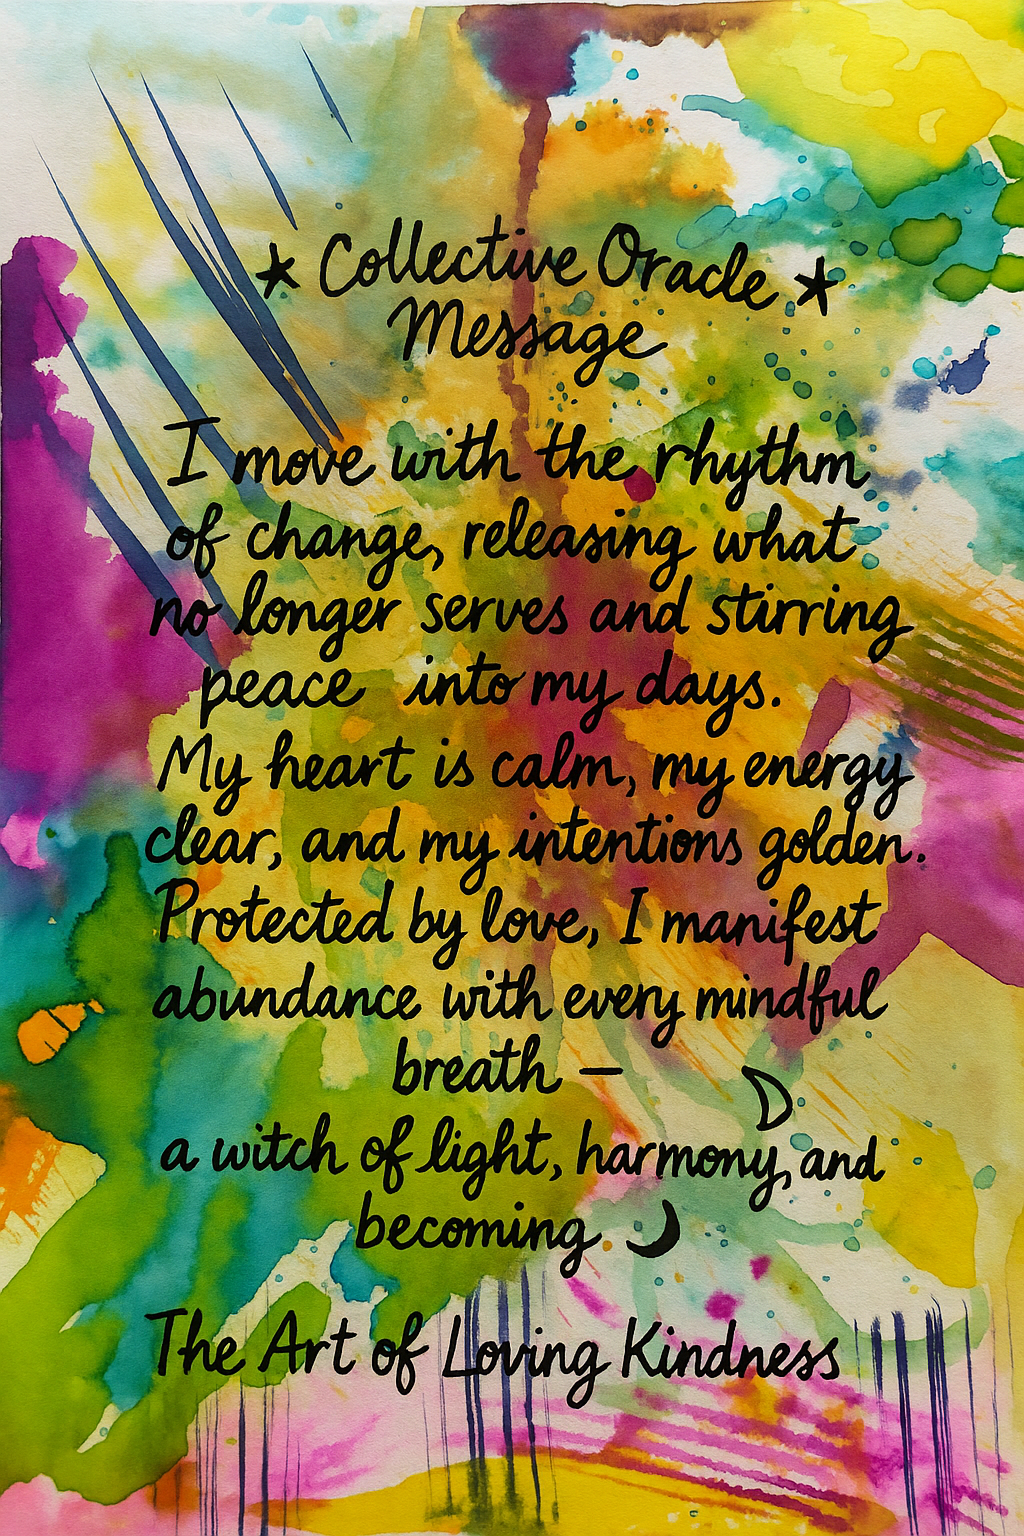 Collective Oracle
Message
I move with the rhythm
of change, releasing what
no longer serves and stirring
peace into my days.
My heart is calm, my energy
clear, and my intentions golden.
Protected by love, I manifest
abundance with every mindful
breath —
a witch of light, harmony, and
becoming
The Art of Loving Kindness